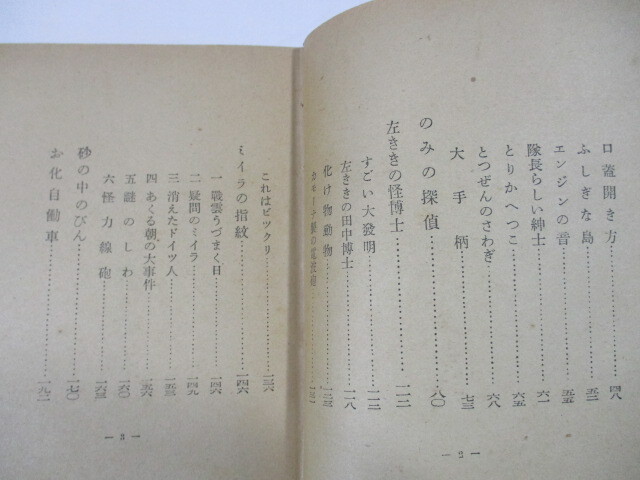 口蓋開き方……………四八
ふしぎな島……………五二
エンジンの音……………五五
隊長らしい紳士……………六一
とりかへつこ……………六五
とつぜんのさわぎ……………六八
大手柄……………七三
のみの探偵……………八〇
左ききの怪博士……………一一二
すごい大發明……………一一二
左ききの田中博士……………一一八
化け物動物……………一二三
— 2 —
これはビックリ……………一三六
ミイラの指紋……………一四六
一 戰雲うづまく日……………一四六
二 疑問のミイラ……………一四九
三 消えたドイツ人……………一五三
四 あくる朝の大事件……………一五六
五 謎のしわ……………一六〇
六 怪力線砲……………一六三
砂の中のびん……………一七〇
お化自動車……………一九二
— 3 —